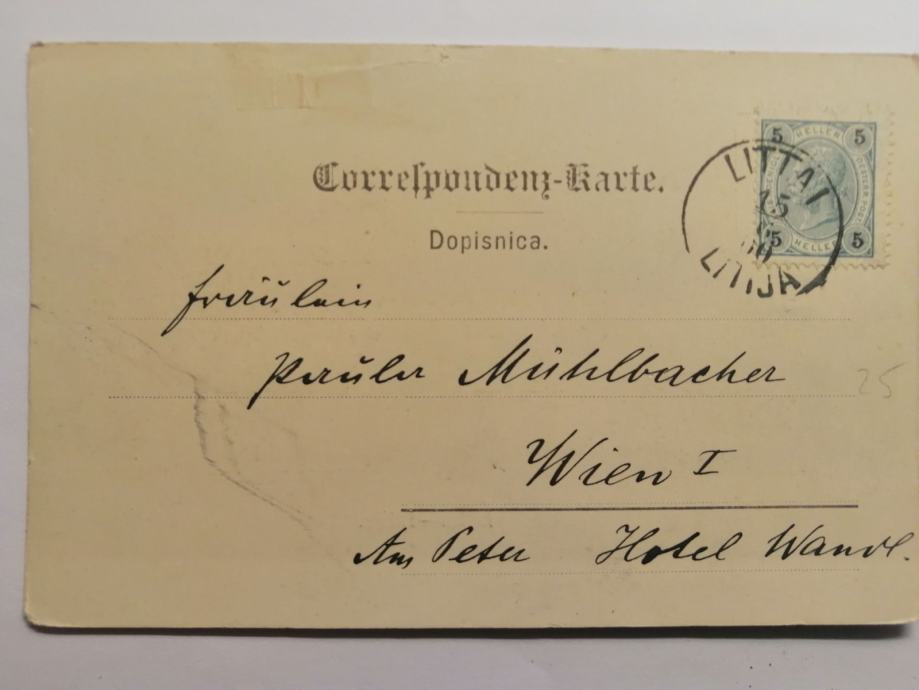 Correspondenz-Karte.
Dopisnica.
5 HELLER 5
5 HELLER 5
LITTAI
15
LITIJA
Fräulein
Paula Mühlbacher
25
Wien I
Am Peter Hotel Wandl.